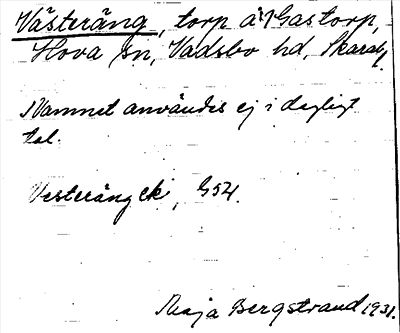 Västeräng, torp å Gastorp,
Hova sn, Vadsbo hd, Skarab.
Namnet användes ej i dagligt
tal.
Vesteräng ek, G54.
Maja Bergstrand 1931.